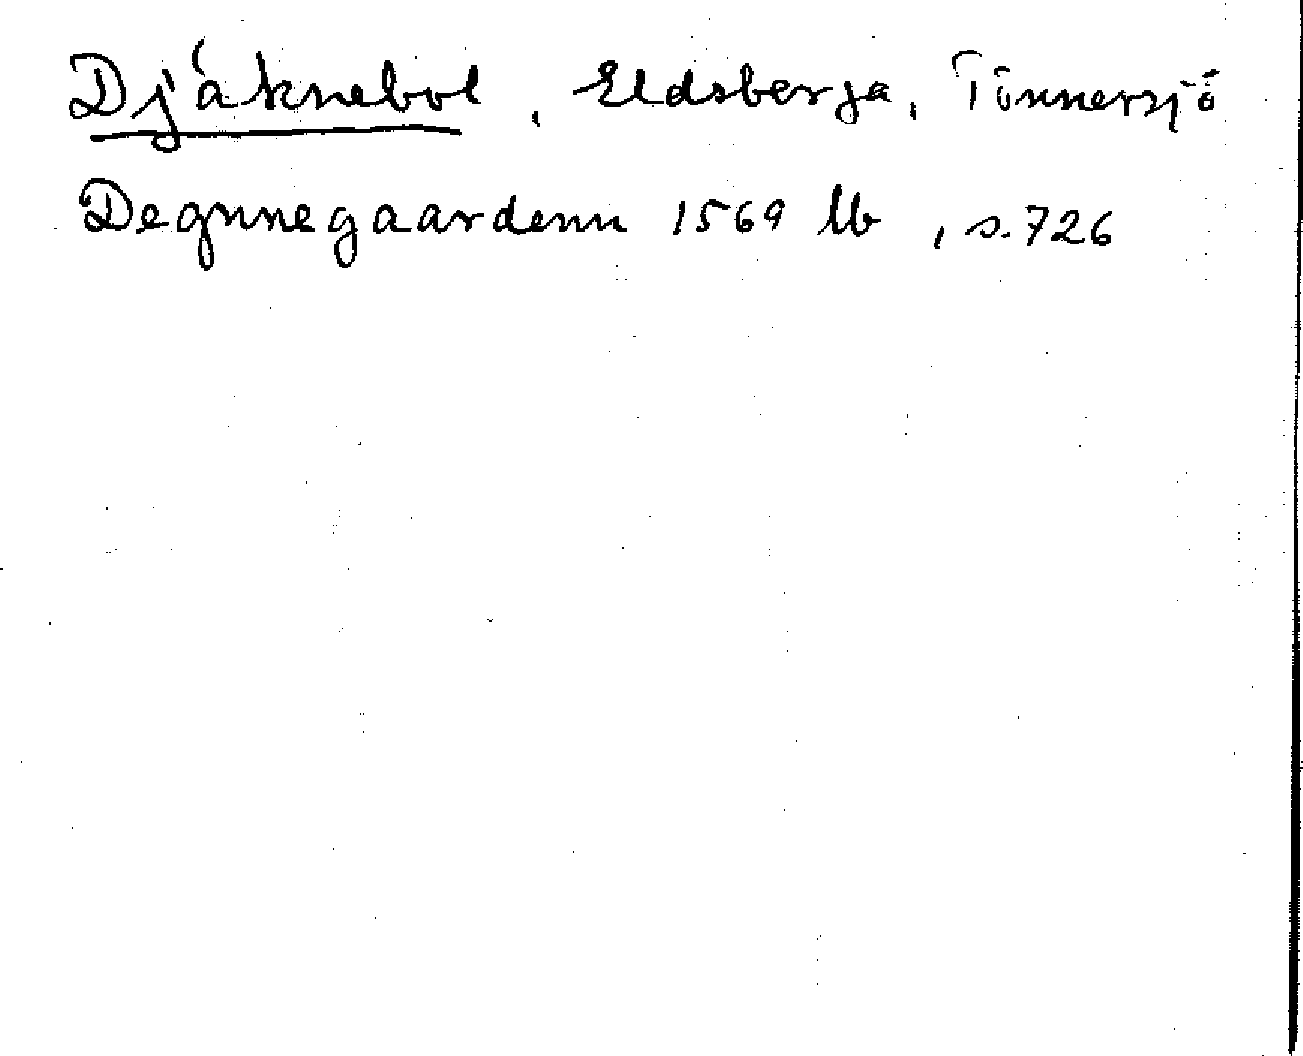 Djäknebol, Eldsberga, Tönnersjö
Degnnegaardenn 1569 lb, s. 726